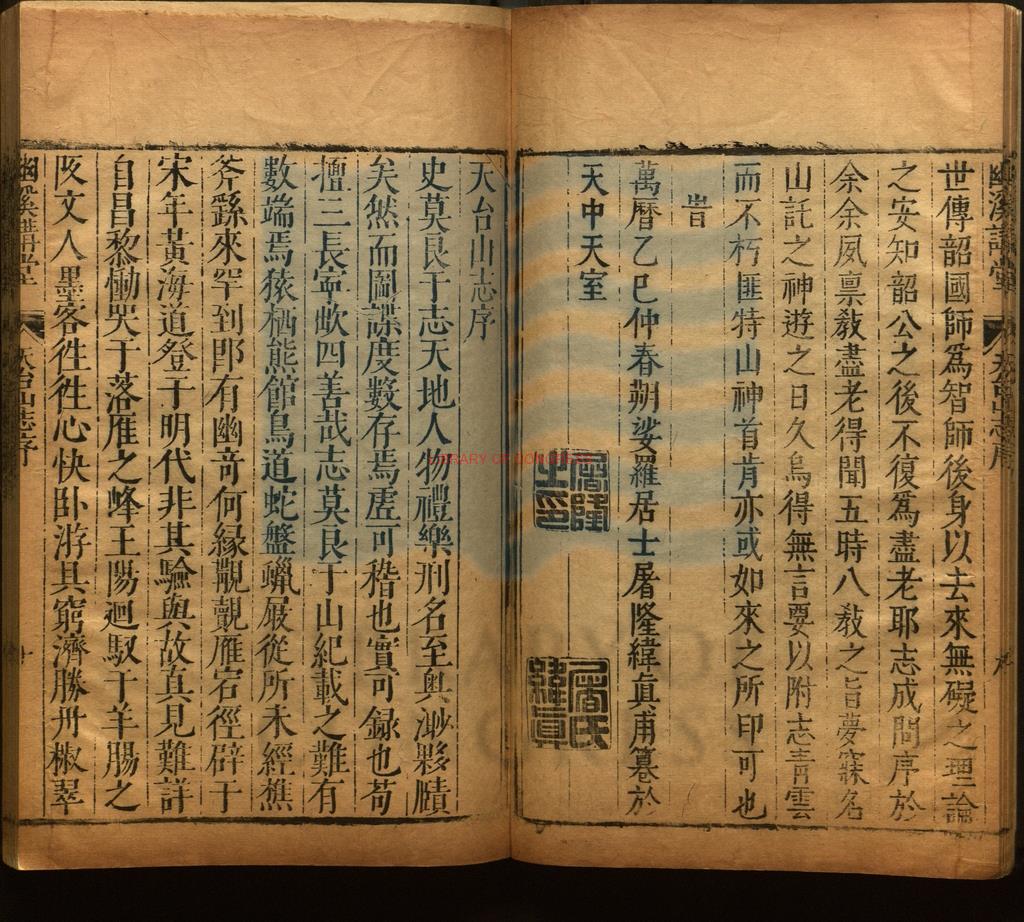 世傳韶國師爲智師後身以去來無礙之理論
之安知韶公之後不復爲盡老耶志成問序於
余余夙禀敎盡老得聞五時八敎之旨夢寐名
山託之神遊之日久烏得無言要以附志靑雲
而不朽匪特山神首肯亦或如來之所印可也
旹
萬曆乙巳仲春朔娑羅居士屠隆緯眞甫纂於
天中天室
屠隆之印
屠氏緯眞
天台山志序
史莫艮于志天地人物禮樂刑名至奥渺夥賾
矣然而圖諜度數存焉虗可稽也實可録也苟
擅三長寧歉四善哉志莫艮于山紀載之難有
數端焉猿栖熊館鳥道蛇盤巉嚴從所未經樵
斧繇來罕到即有幽竒何縁覯覿雁宕徑辟于
宋年黃海道登于明代非其驗與故真見難詳
自昌黎慟哭于落雁之峰王陽迴馭于羊腸之
阪文人墨客徃徃心快卧游具窮濟勝丹椒翠
幽溪講堂
天台山志序
十
幽溪講堂
天台山志序
九
LIBRARY OF CONGRESS